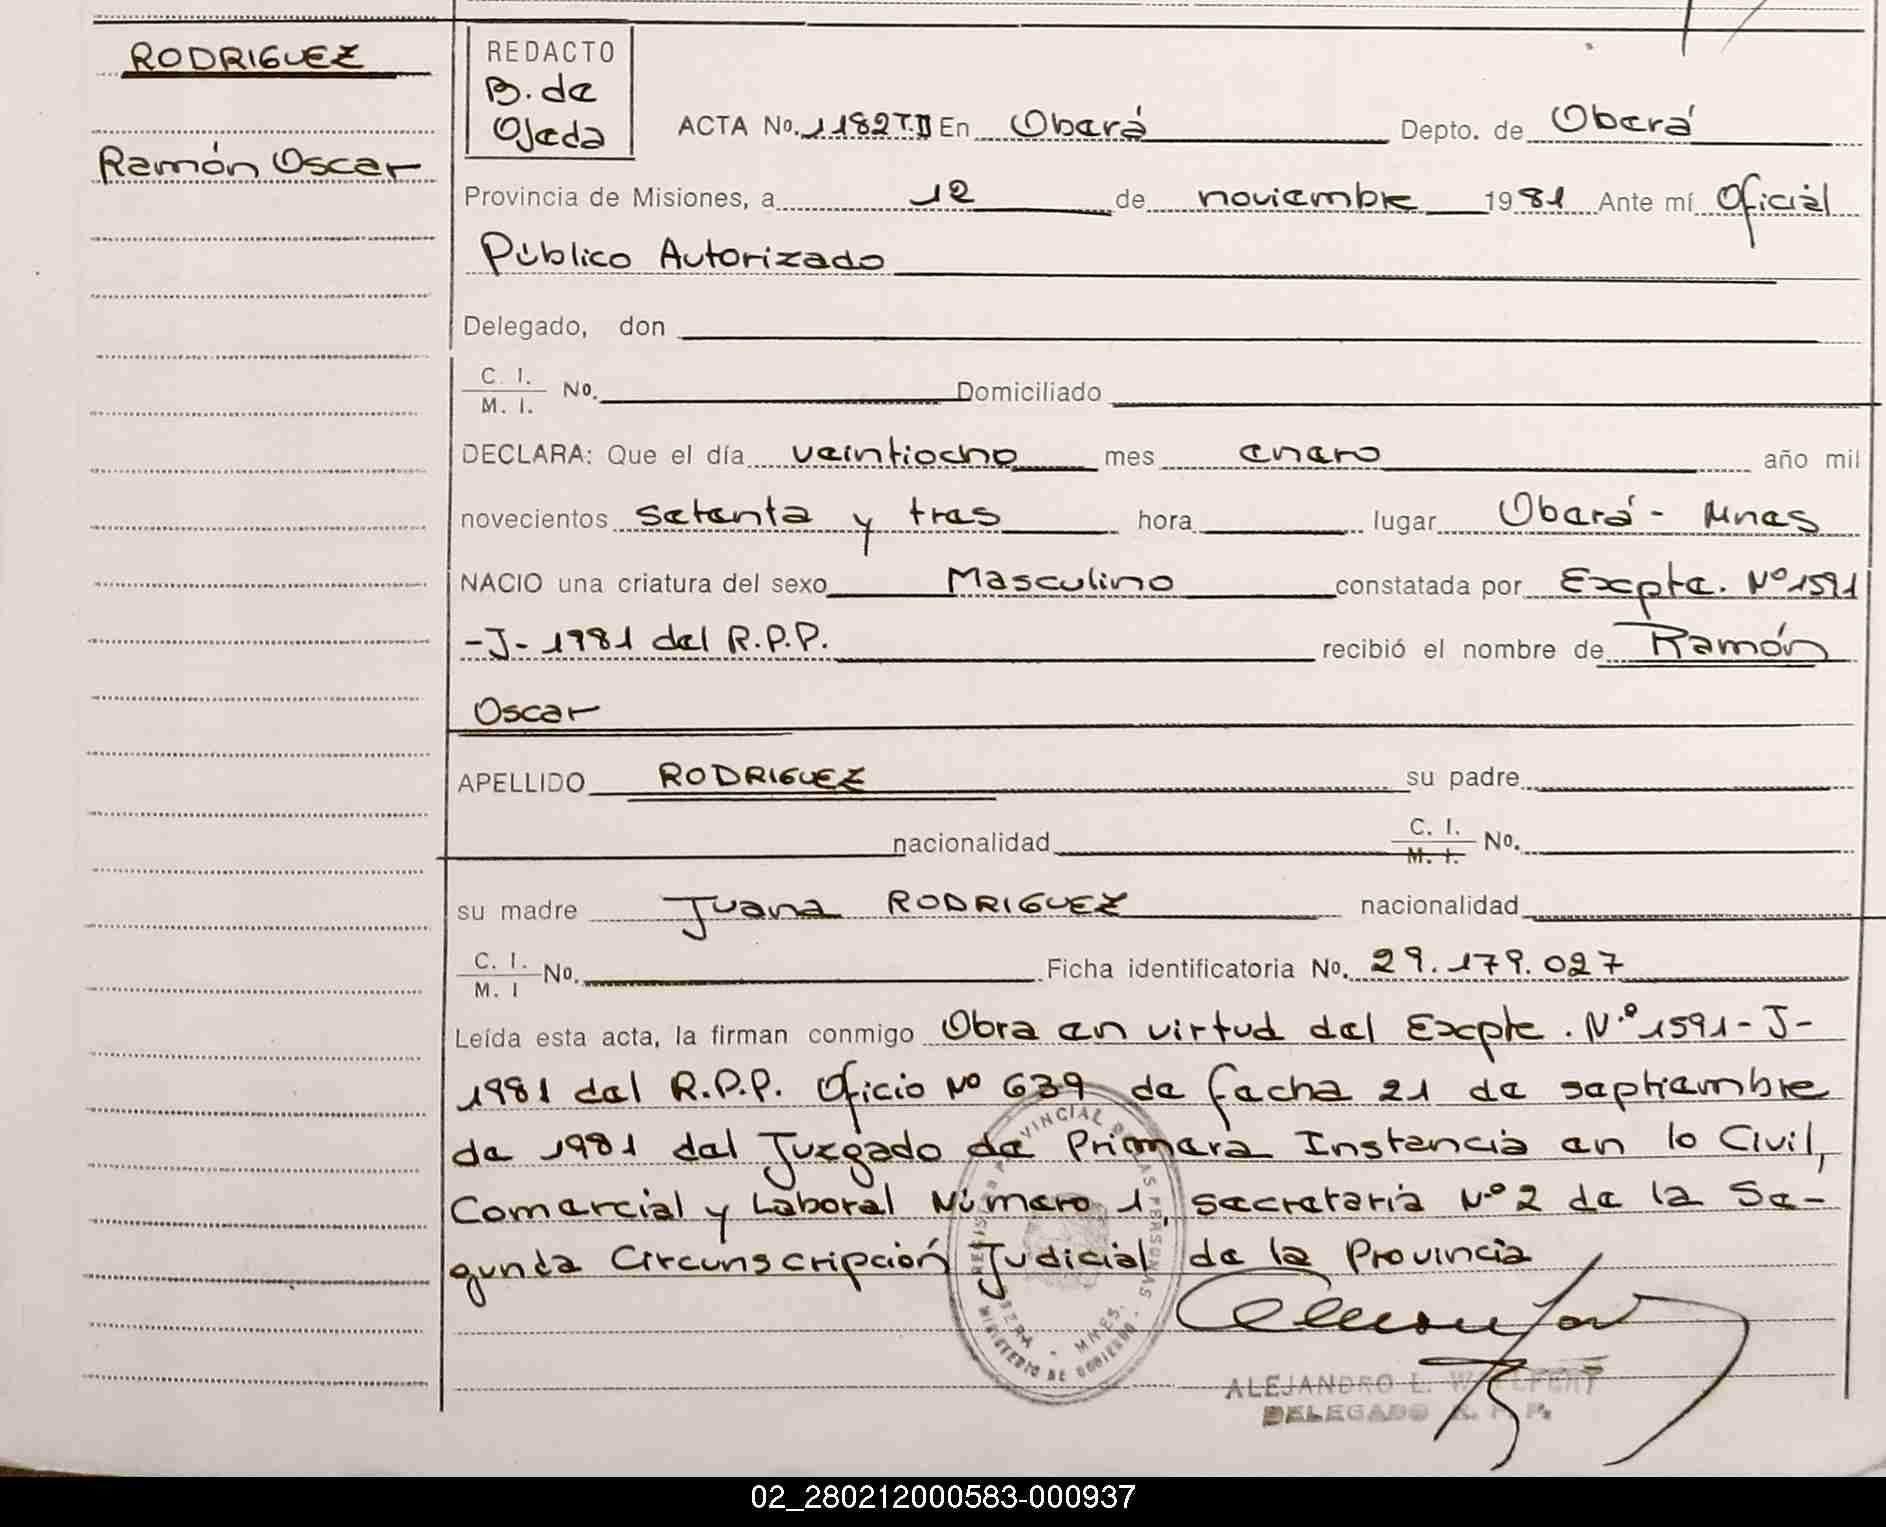 RODRIGUEZ
Ramón Oscar
REDACTO
B. de
Ojeda
ACTA No. 1182 T.II En Oberá Depto. de Oberá
Provincia de Misiones, a 12 de noviembre 1981 Ante mí Oficial
Público Autorizado
Delegado, don
C. I.
M. I. No. Domiciliado
DECLARA: Que el día veintiocho mes enero año mil
novecientos setenta y tres hora lugar Oberá - Mnes
NACIO una criatura del sexo Masculino constatada por Excpte. Nº 1591
-J- 1981 del R.P.P. recibió el nombre de Ramón
Oscar
APELLIDO RODRIGUEZ su padre
nacionalidad C. I. M. I. No.
su madre Juana RODRIGUEZ nacionalidad
C. I.
M. I No. Ficha identificatoria No. 29.179.027
Leída esta acta, la firman conmigo Obra en virtud del Excpte. N.º 1591-J-
1981 del R.P.P. Oficio Nº 639 de fecha 21 de septiembre
de 1981 del Juzgado de Primera Instancia en lo Civil,
Comercial y Laboral Número 1, secretaria Nº 2 de la Se-
gunda Circunscripción Judicial de la Provincia
MINISTERIO DE GOBIERNO
ALEJANDRO L.
DELEGADO R. P. P.
02_280212000583-000937